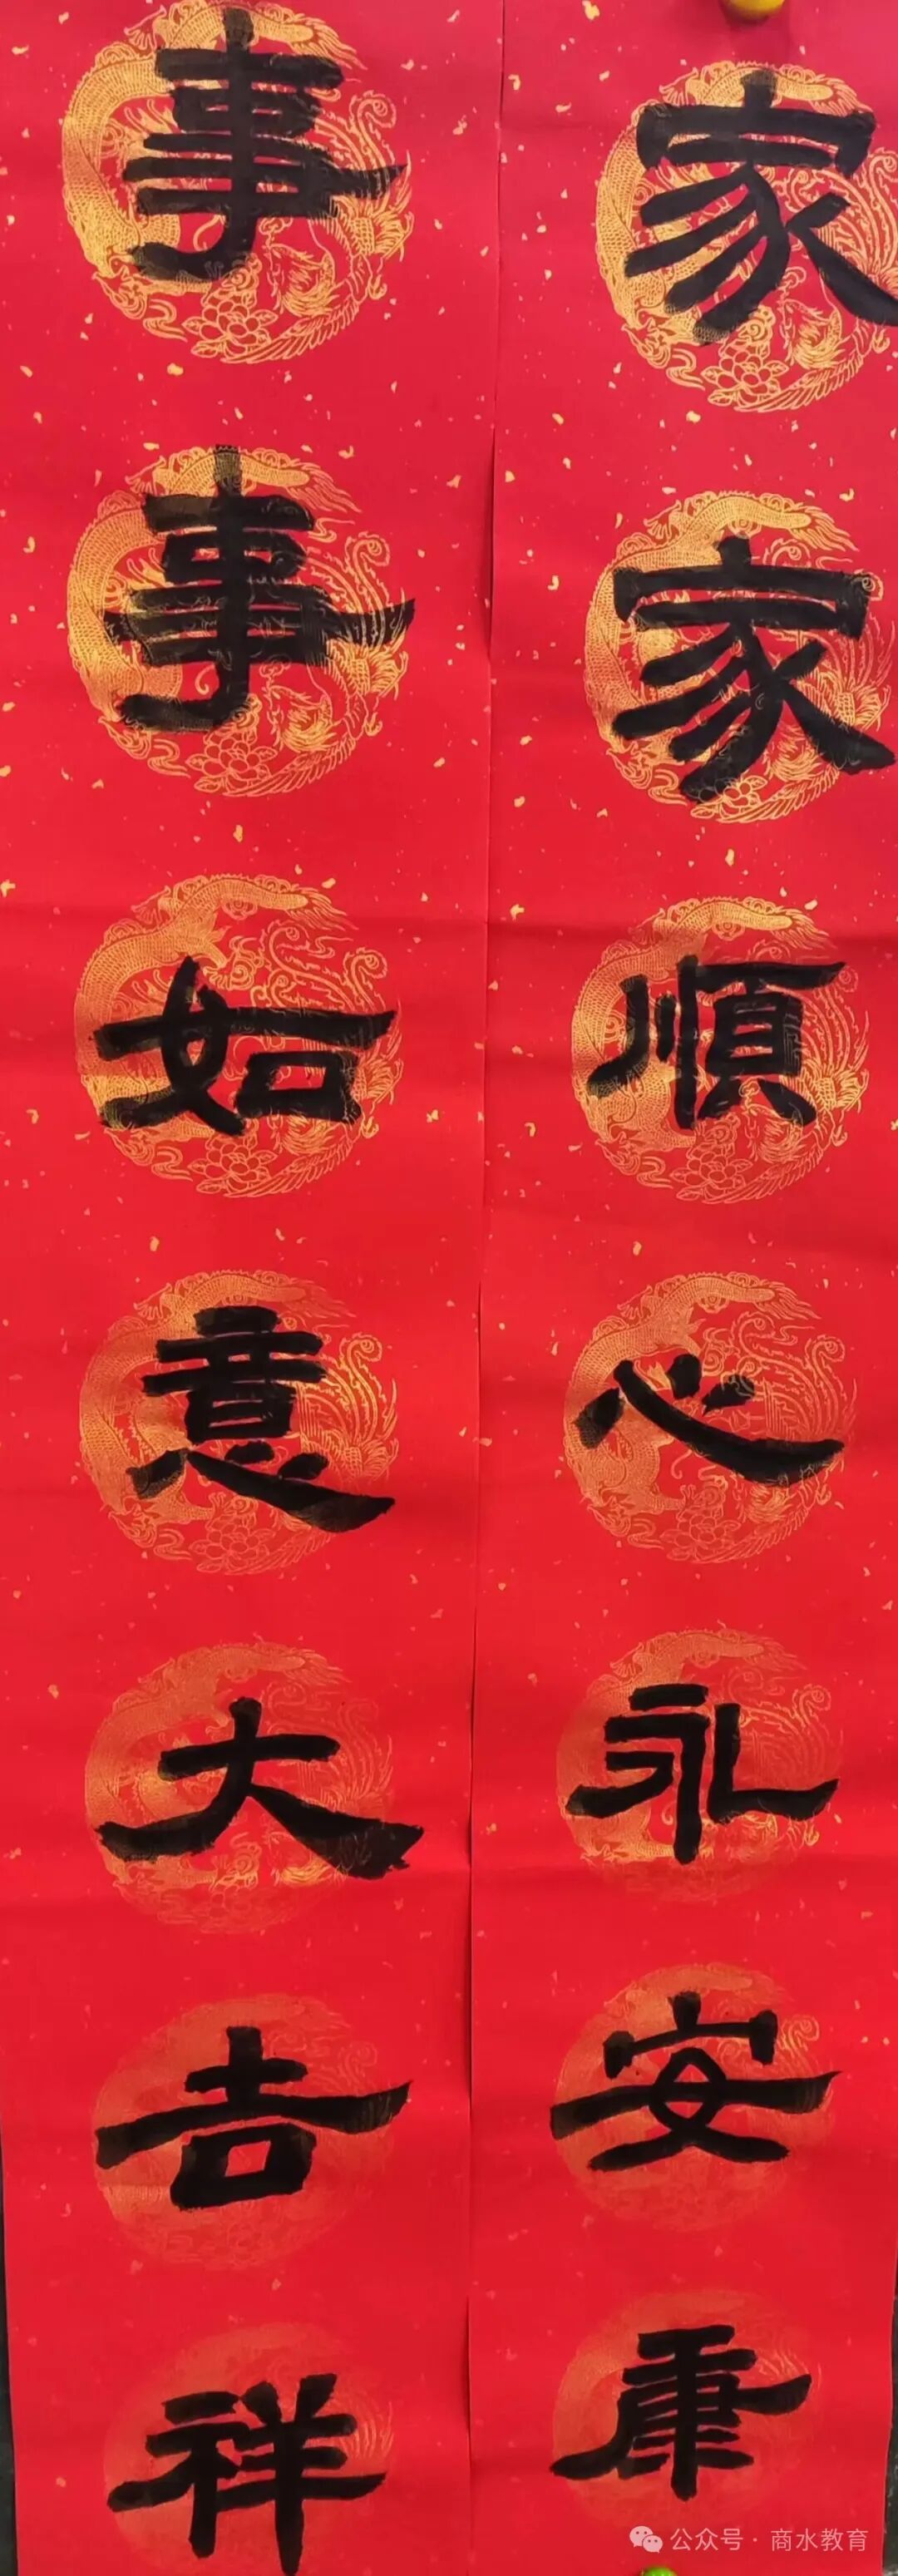 家家順心永安康
事事如意大吉祥
公众号·商水教育